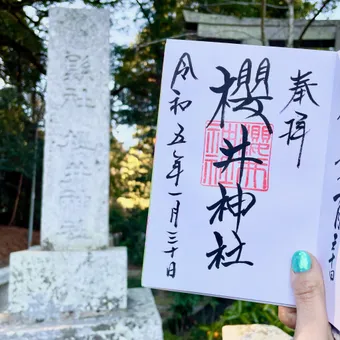 奉拝
櫻井神社
令和五年一月三十日
縣社 櫻井神社